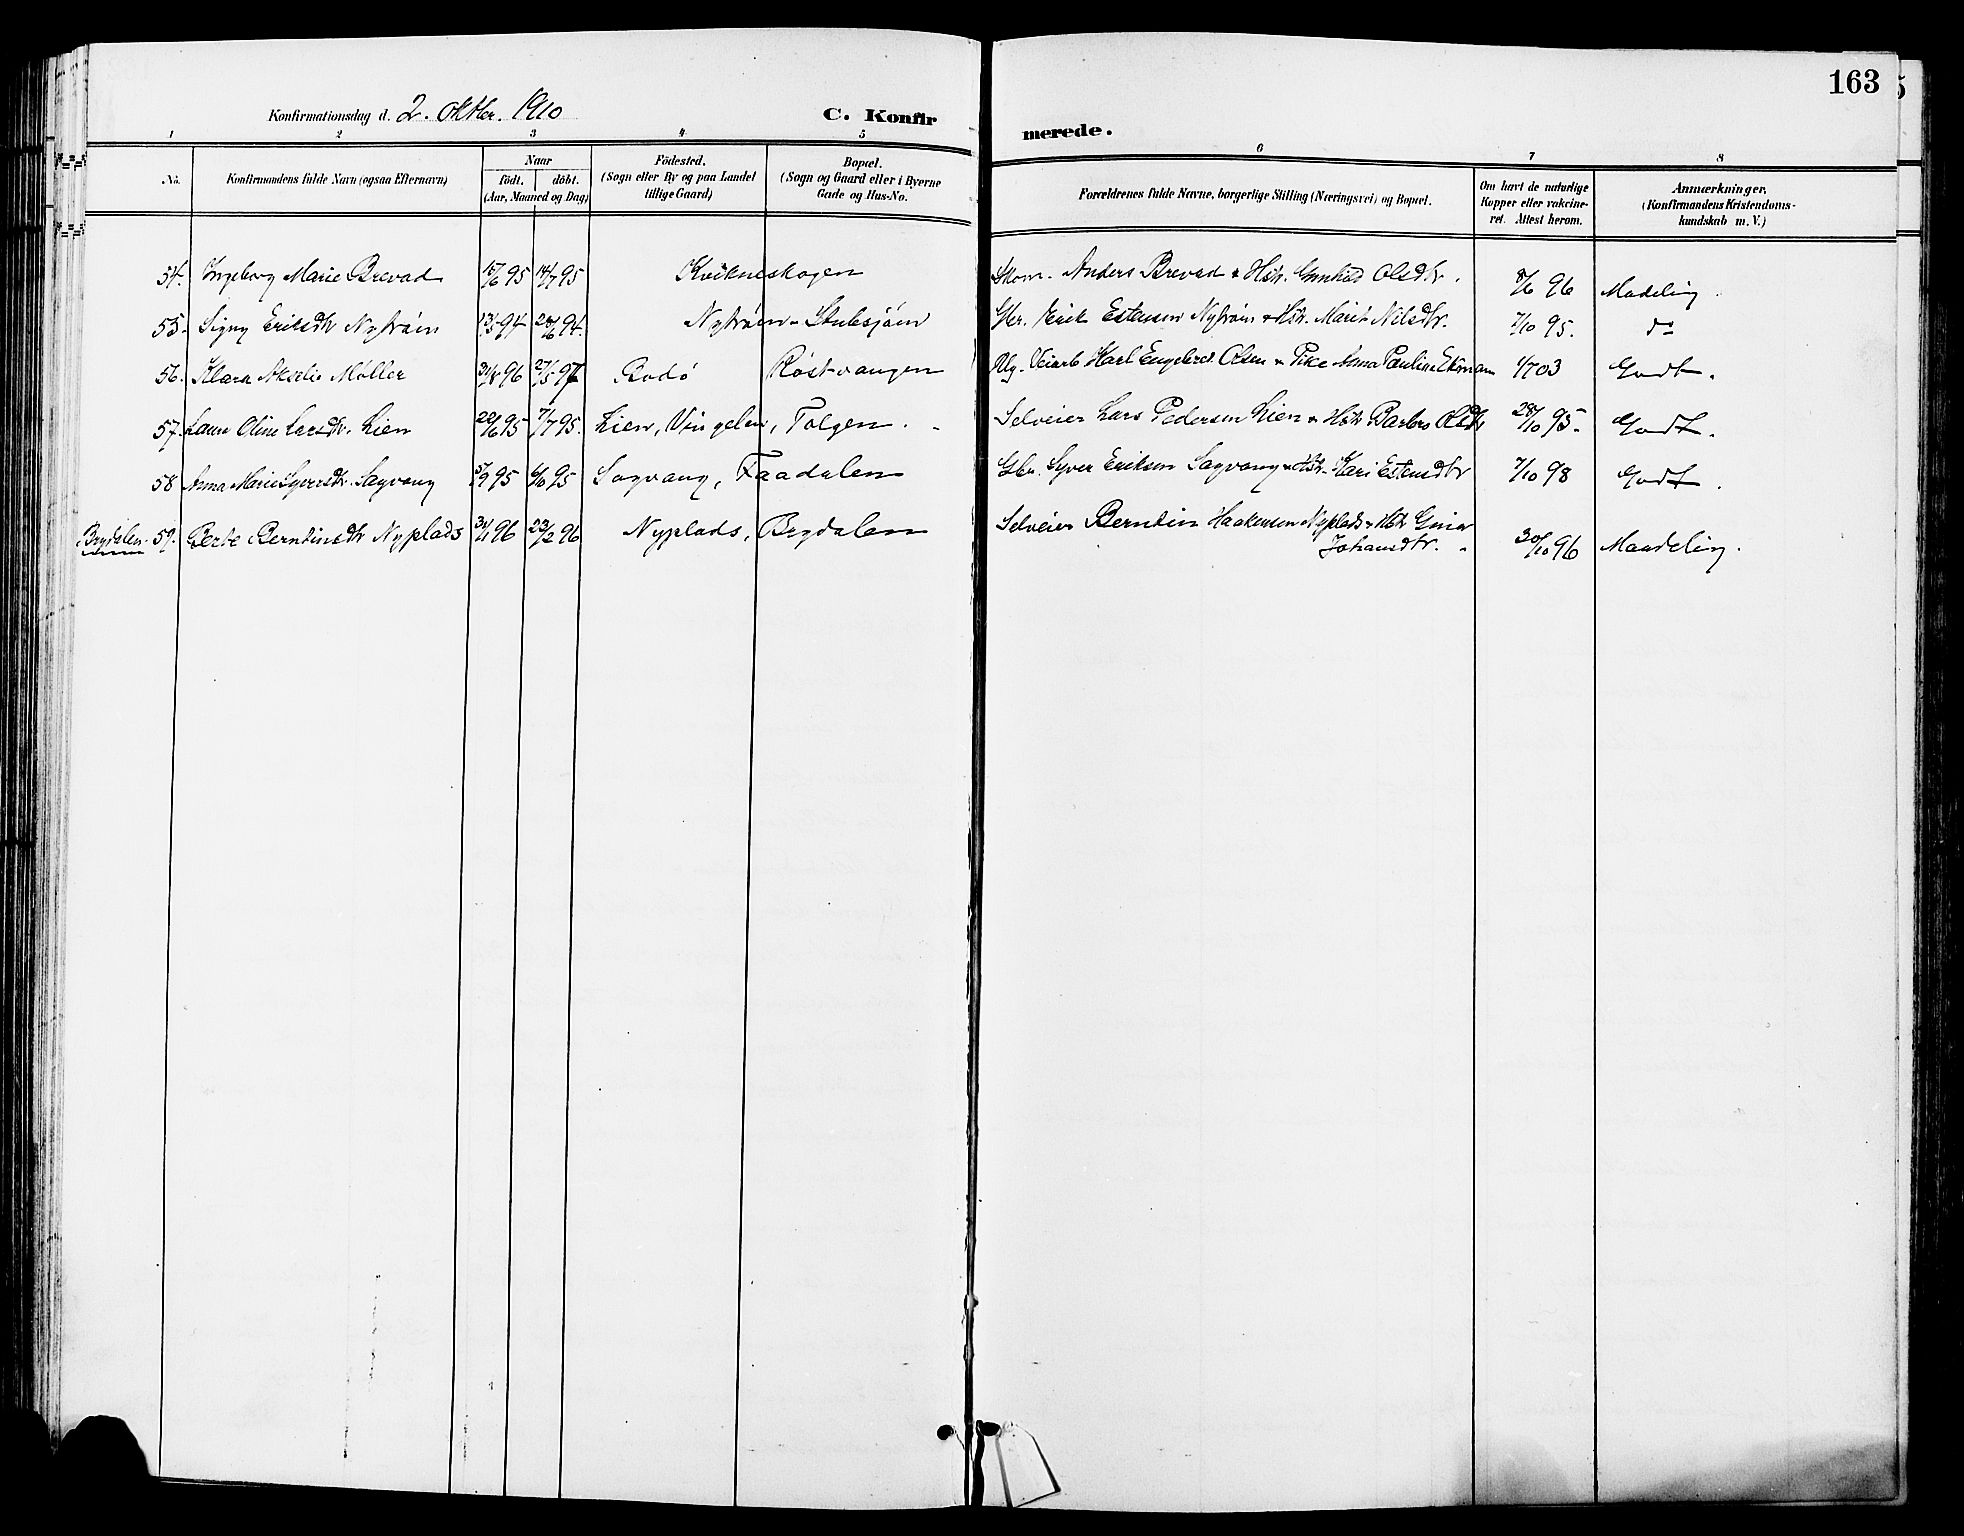 163
Konfirmationsdag d. 2. Oktbr. 1910
C. Konfir
merede.
1 2 3 4 5 6 7 8
No.
Konfirmandens fulde Navn (ogsaa Efternavn)
Naar
födt. döbt.
(Aar, Maaned og Dag)
Födested.
(Sogn eller By og paa Landet
tillige Gaard)
Bopæl.
(Sogn og Gaard eller i Byerne
Gade og Hus-No.
Forældrenes fulde Navne, borgerlige Stilling (Næringsvei) og Bopæl.
Om havt de naturlige
Kopper eller vakcine-
ret. Attest herom.
Anmærkninger.
(Konfirmandens Kristendoms-
kundskab m. V.)
54. Ingeborg Marie Brevad 95 14/7 95 Kvikneskogen Skom. Anders Brevad & Hst. Gunhild Olsdtr. 8/6 96 Madelig.
55. Signy Eriksdtr Nyström 94 94. Nyström - Stubsjöen Gbr. Erik Estensen Nyström & Hst. Marit Nilsdtr. 7/10 95. do
56. Klara Akselie Møller 96 27/5 97 Bodö Röstvangen Ug. Veiarb Karl Engebret Olsen & Pike Anna Pauline Ekman 03 Godt.
57. Laura Oline Larsdtr. Lien 22/6 95 7/7 95. Lien, Vingelen, Tolgen. Selveier Lars Pedersen Lien & Hst. Barbro Olsdtr 28/10 95. Godt.
58 Anna Marie Syversdtr. Sagvang 95 6/10 95 Sagvang, Faadalen Gbr. Syver Eriksen Sagvang & Hst. Kari Estensdtr 7/10 98 Godt.
Brydalen 59. Berte Berntinsdtr Nyplads 96 23/2 96 Nyplads, Brydalen Selveier Berntin Haakensen Nyplads & Hst Gina
Johansdtr. 30/10 96 Maadelig.